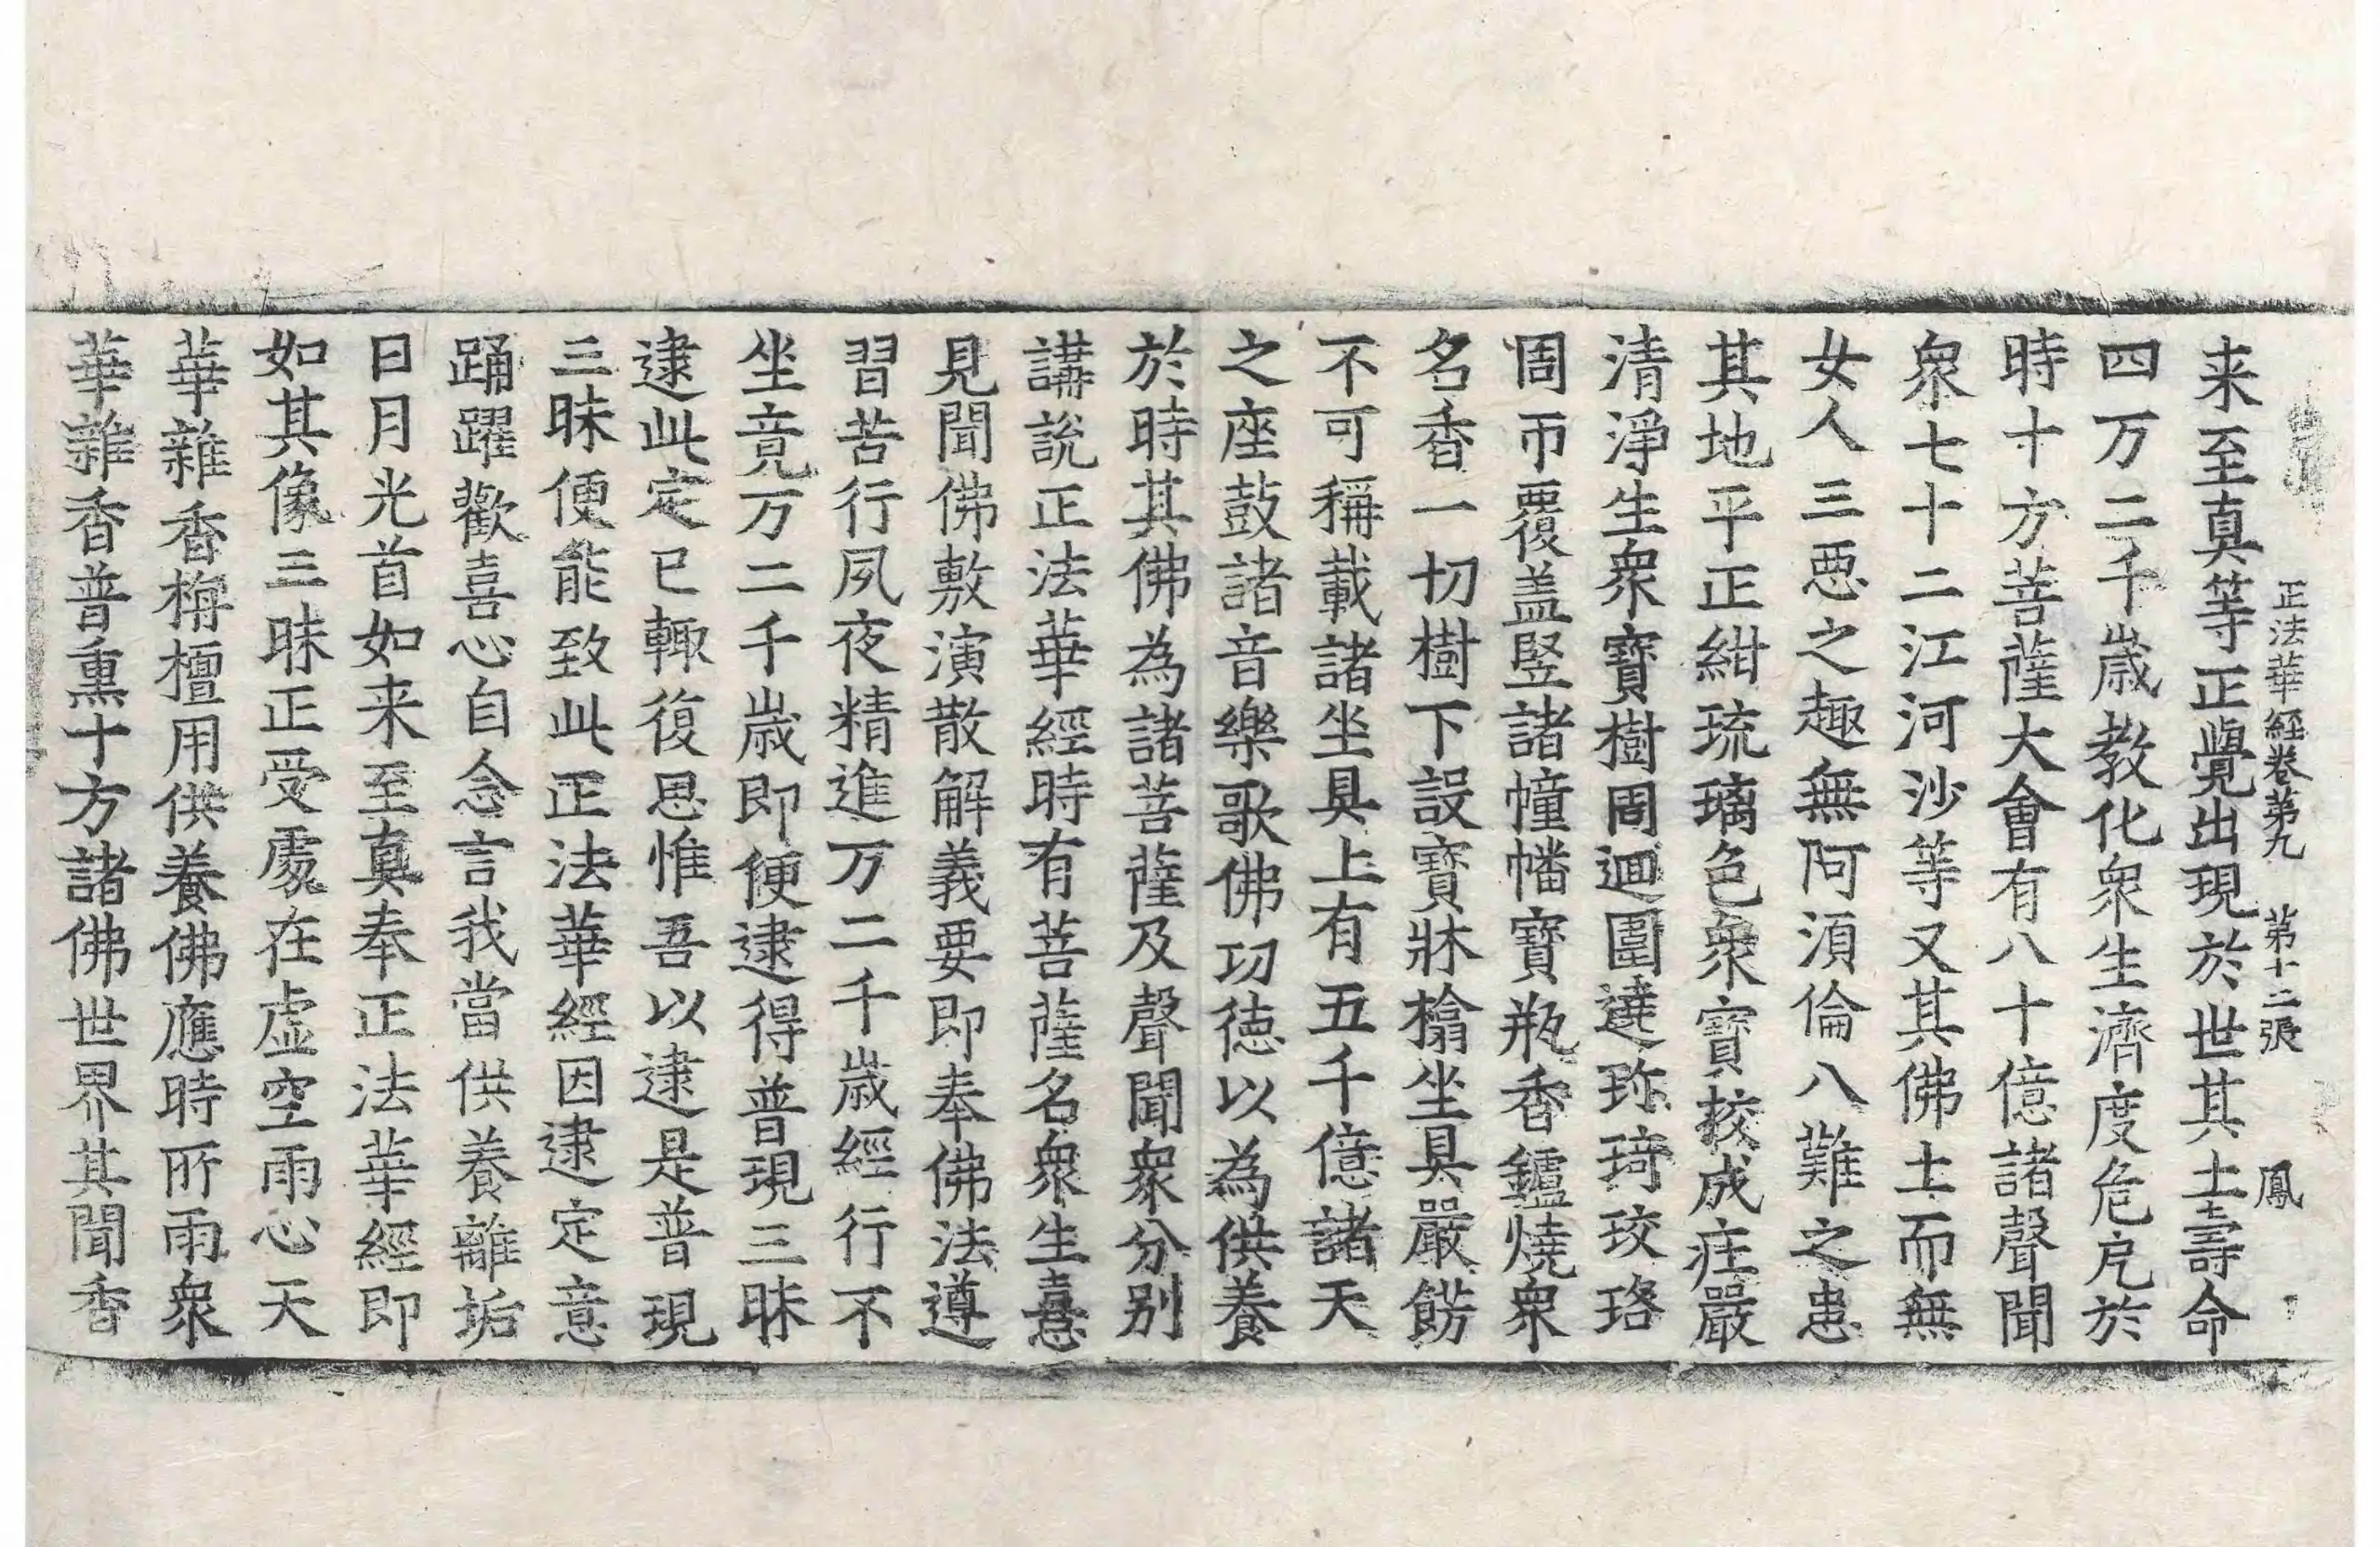 正法華經卷第九 第十二張 鳳
来至真等正覺出現於世其土壽命
四万二千歲教化衆生濟度危厄於
時十方菩薩大會有八十億諸聲聞
衆七十二江河沙等又其佛土而無
女人三惡之趣無阿須倫八難之患
其地平正紺琉璃色衆寶挍成庄嚴
清淨生衆寶樹周迴圍遶珎琦珓珞
周帀覆盖竪諸幢幡寶瓶香鑪燒衆
名香一切樹下設寶牀榻坐具嚴餝
不可稱載諸坐具上有五千億諸天
之座鼓諸音樂歌佛功德以為供養
於時其佛為諸菩薩及聲聞衆分別
講說正法華經時有菩薩名衆生憙
見聞佛敷演散解義要即奉佛法遵
習苦行夙夜精進万二千歲經行不
坐竟万二千歲即便逮得普現三昧
逮此定已輒復思惟吾以逮是普現
三昧便能致此正法華經因逮定意
踊躍歡喜心自念言我當供養離垢
日月光首如来至真奉正法華經即
如其像三昧正受處在虛空雨心天
華雜香栴檀用供養佛應時所雨衆
華雜香普熏十方諸佛世界其聞香